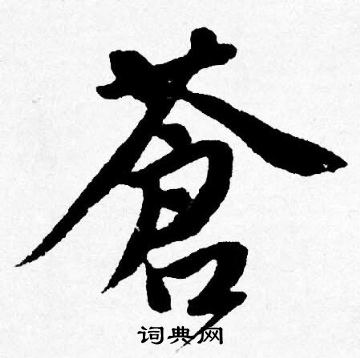 蒼
词典网